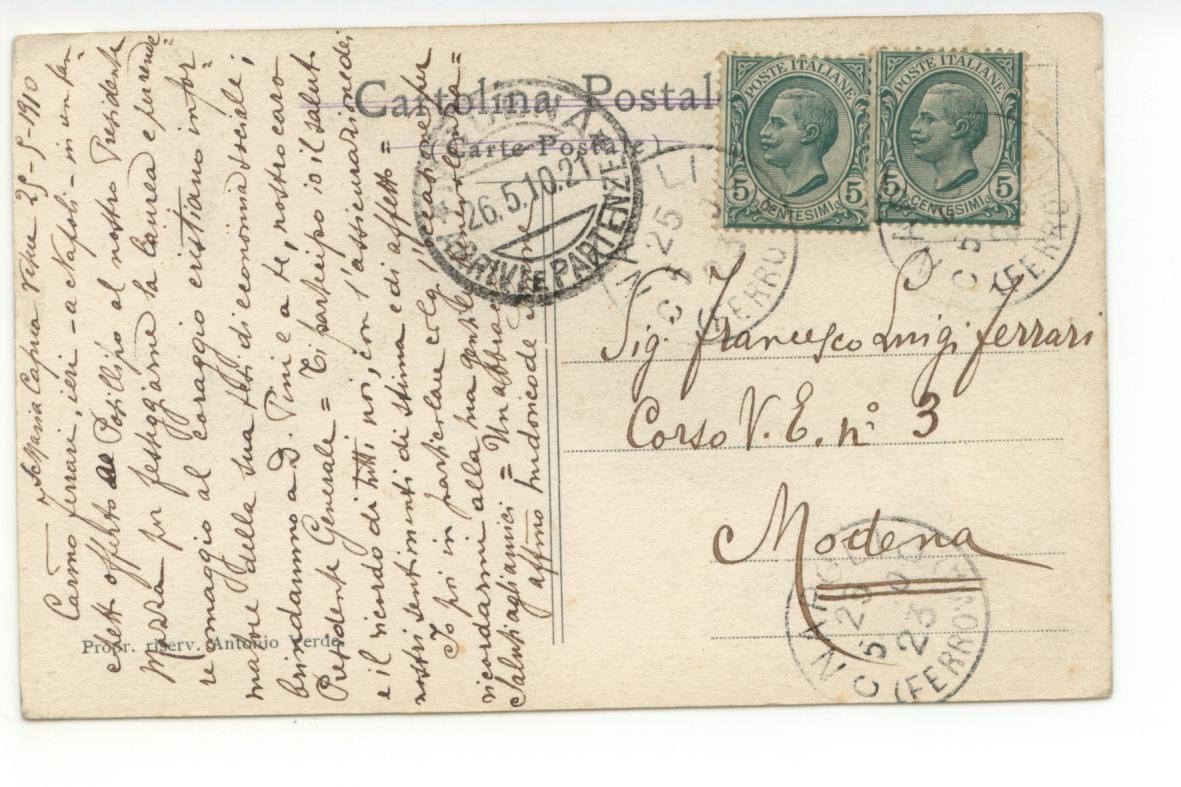 S. Maria Capua Vetere 25-5-1910
Carmo Ferrari, ieri - a Napoli - in un ban=
chetto offerto al Posillipo al nostro Presidente
Mazza per festeggiarne la laurea e per rende=
re omaggio al coraggio cristiano infor=
matore della sua tesi di economia sociale,
brindammo a D. Pini e a te, nostro caro
Presidente Generale = Ti partecipo io il saluto
e il ricordo di tutti noi, con l'assicurazione dei
nostri sentimenti di stima e di affetto =
Io poi in particolare colgo l'occasione per
ricordarmi alla tua gentile
Saluti agli amici = Un abbraccio
affmo
Cartolina Postale
(Carte Postale)
POSTE ITALIANE
5 CENTESIMI 5
POSTE ITALIANE
5 CENTESIMI 5
MODENA
26.5.10.21
ARRIVI E PARTENZE
NAPOLI
25
(FERROVIA)
(FERROVIA)
Sig. Francesco Luigi Ferrari
Corso V. E. n° 3
Modena
NAPOLI
(FERROVIA)
Propr. riserv. Antonio Verde